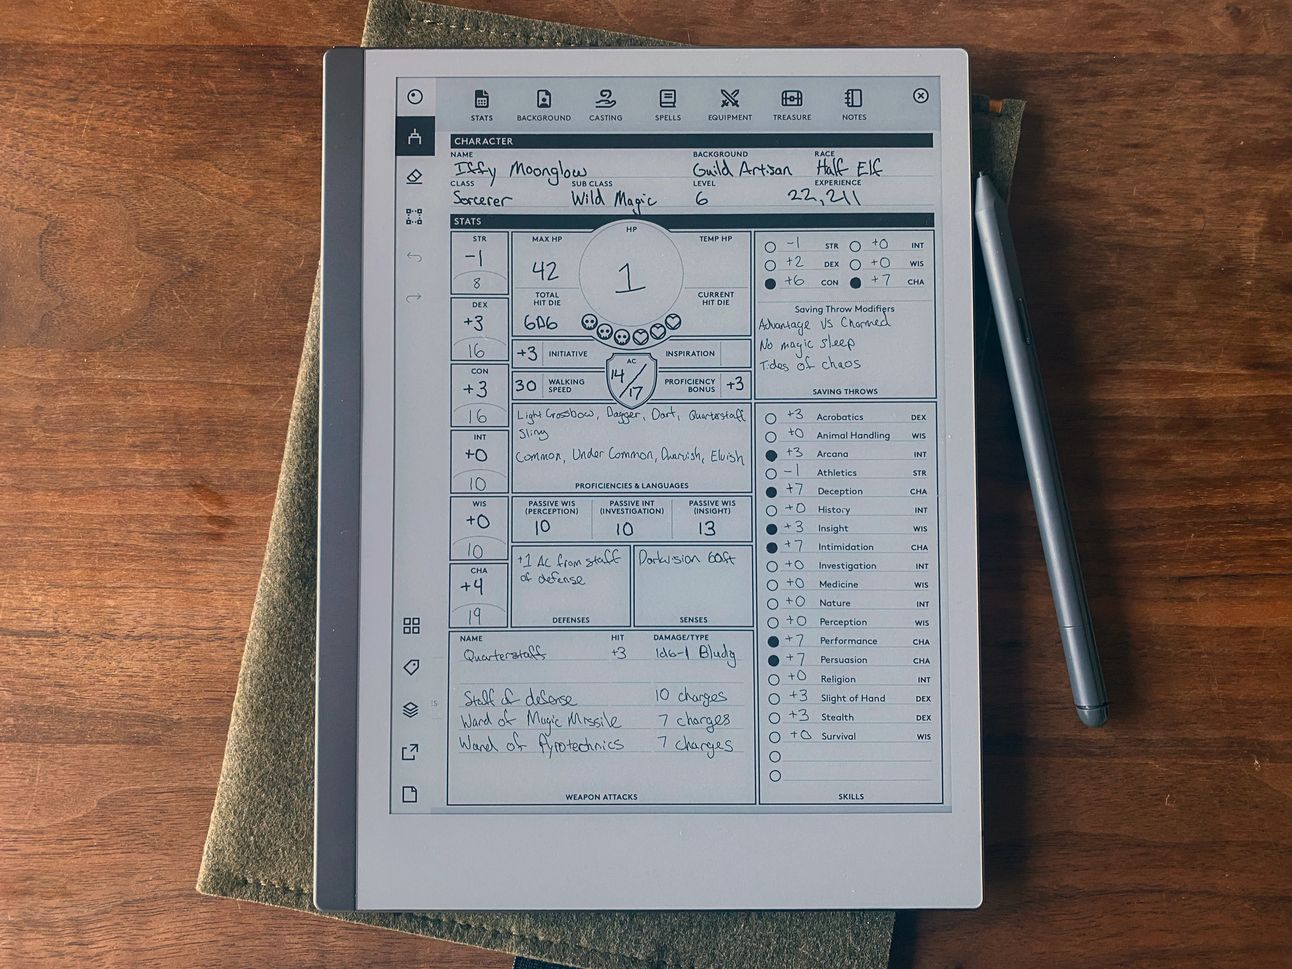 STATS BACKGROUND CASTING SPELLS EQUIPMENT TREASURE NOTES
CHARACTER
NAME BACKGROUND RACE
Iffy Moonglow Guild Artisan Half Elf
CLASS SUB CLASS LEVEL EXPERIENCE
Sorcerer Wild Magic 6 22,211
STATS
STR
-1
8
DEX
+3
16
CON
+3
16
INT
+0
10
WIS
+0
10
CHA
+4
19
MAX HP
42
HP
1
TEMP HP
TOTAL
HIT DIE
6D6
CURRENT
HIT DIE
+3 INITIATIVE
AC
14/17
INSPIRATION
30 WALKING
SPEED
PROFICIENCY
BONUS +3
Light Crossbow, Dagger, Dart, Quarterstaff
Sling
Common, Under Common, Elvish
PROFICIENCIES & LANGUAGES
PASSIVE WIS
(PERCEPTION)
10
PASSIVE INT
(INVESTIGATION)
10
PASSIVE WIS
(INSIGHT)
13
+1 AC from staff
of defense
DEFENSES
Darkvision 60ft
SENSES
NAME HIT DAMAGE/TYPE
Quarterstaffs +3 1d6-1 Bludg
Staff of defense 10 charges
Wand of Magic Missile 7 charges
Wand of Pyrotechnics 7 charges
WEAPON ATTACKS
-1 STR +0 INT
+2 DEX +0 WIS
+6 CON +7 CHA
Saving Throw Modifiers
Advantage vs Charmed
No magic sleep
Tides of chaos
SAVING THROWS
+3 Acrobatics DEX
+0 Animal Handling WIS
+3 Arcana INT
-1 Athletics STR
+7 Deception CHA
+0 History INT
+3 Insight WIS
+7 Intimidation CHA
+0 Investigation INT
+0 Medicine WIS
+0 Nature INT
+0 Perception WIS
+7 Performance CHA
+7 Persuasion CHA
+0 Religion INT
+3 Slight of Hand DEX
+3 Stealth DEX
+0 Survival WIS
SKILLS